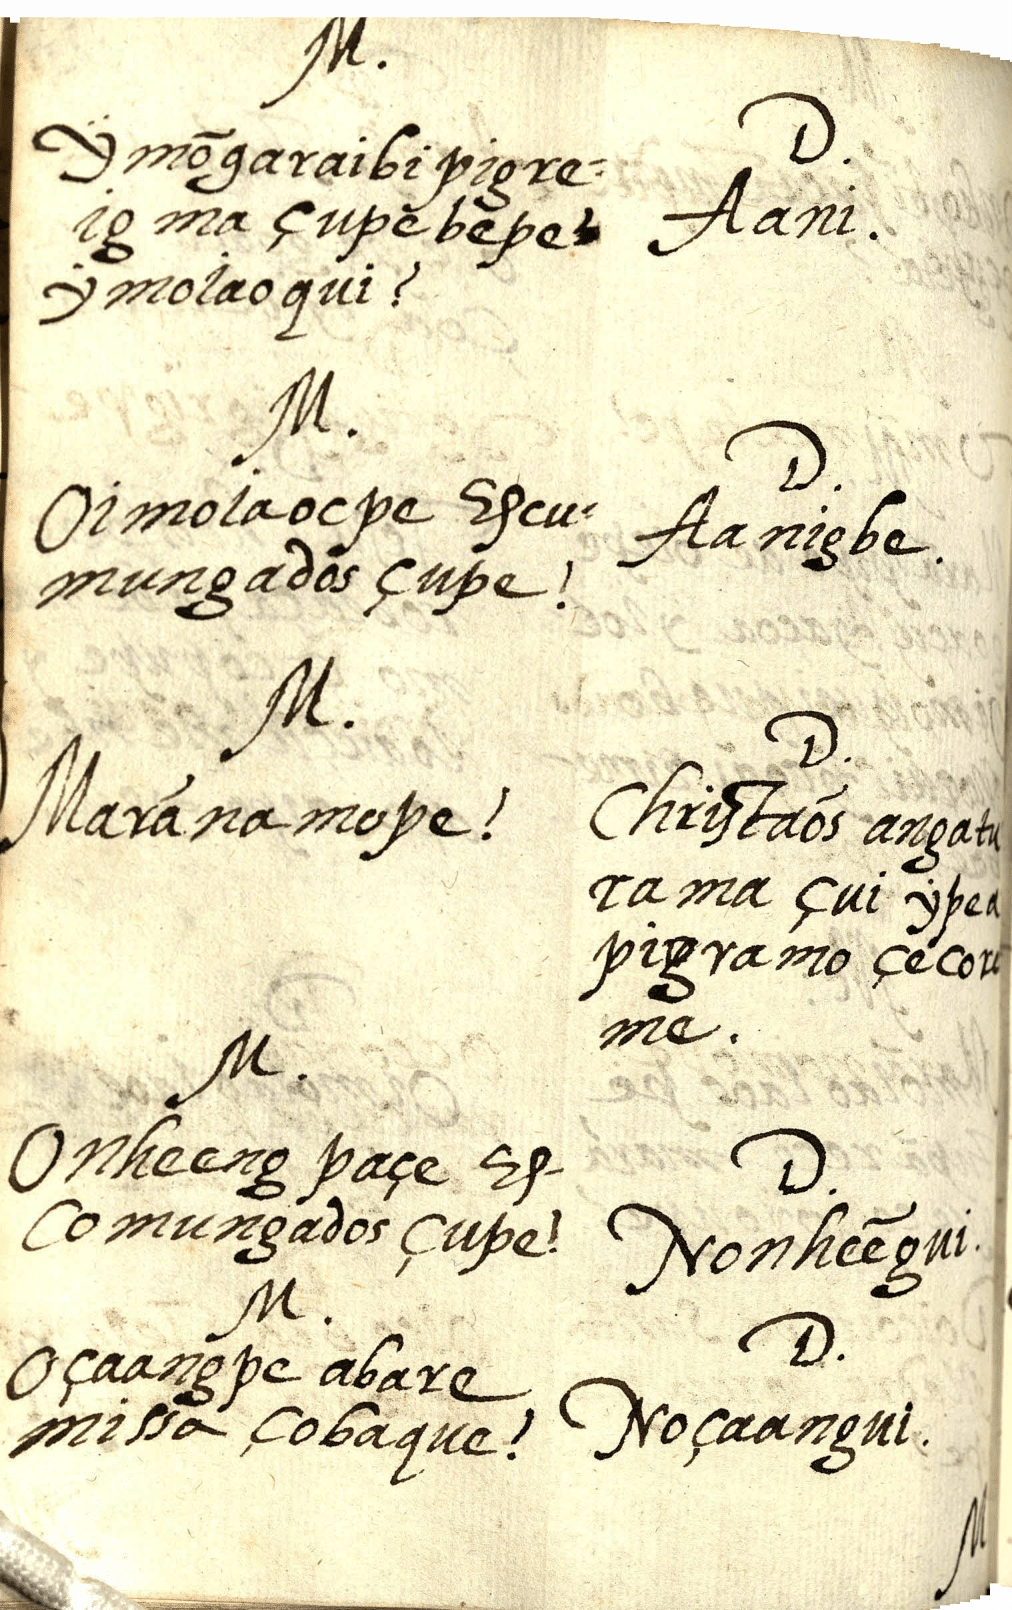 M.
Ÿmõgaraibi pigre=
ig ma çupe bepe!
ÿmoiaoqui?
D.
Aani.
M.
Oimoiaocpe Escu=
mungados çupe!
D.
Aanigbe.
M.
Marãnamope!
D.
Christaõs angatu
rama çui ÿpea
pigramo çecore
me.
M.
Onheeng paçe Es-
comungados çupe!
D.
Nonheẽgui.
M.
Oçaangpe abare
missa çobaque!
D.
Noçaangui.
M